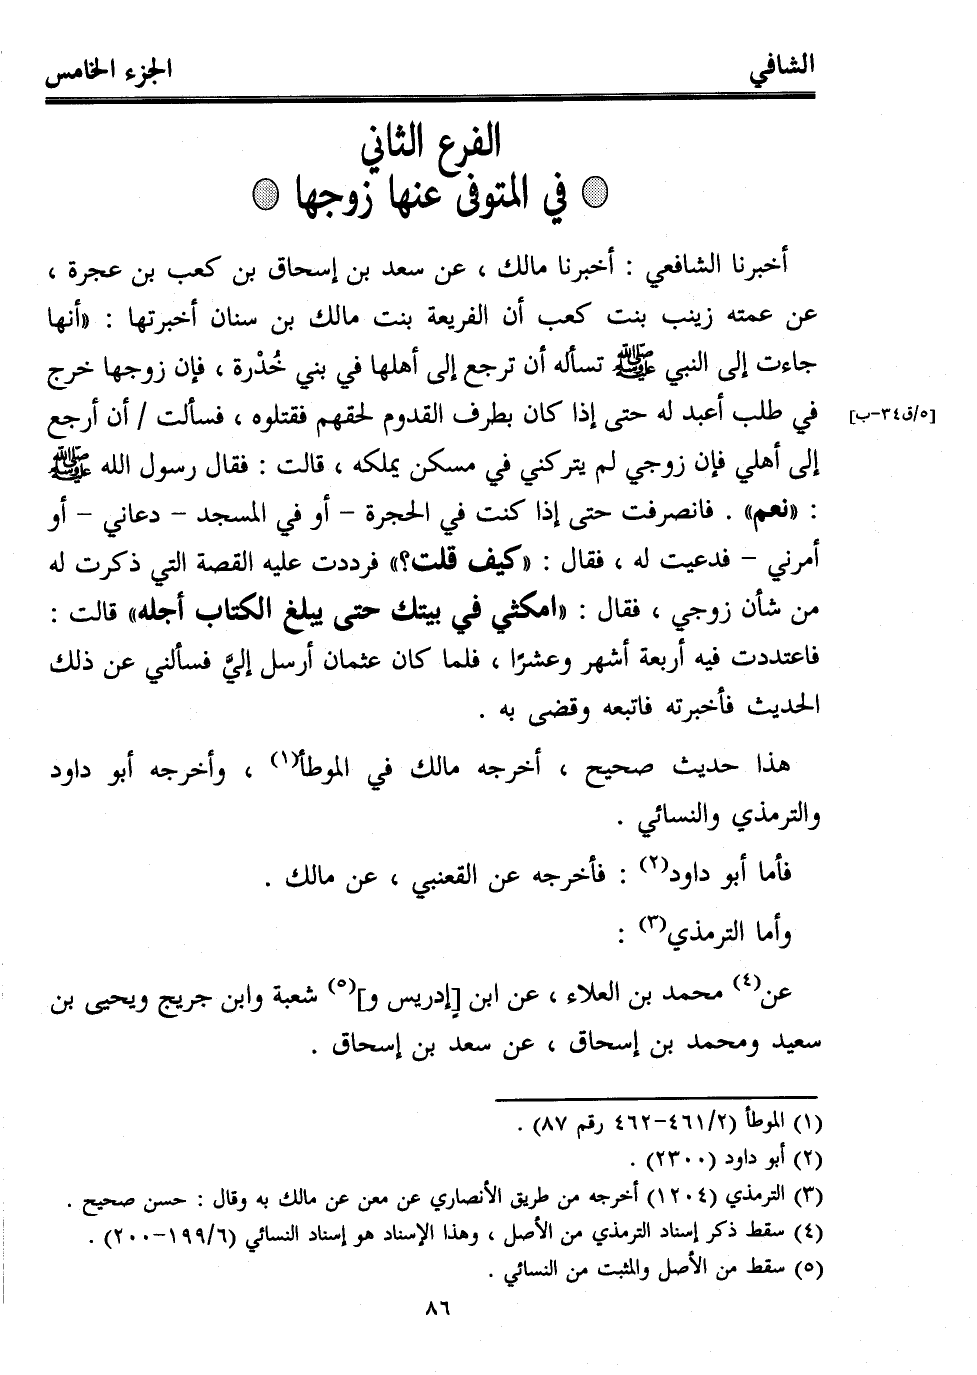 الشافي الجزء الخامس
الفرع الثاني
في المتوفى عنها زوجها
أخبرنا الشافعي : أخبرنا مالك ، عن سعد بن إسحاق بن كعب بن عجرة ،
عن عمته زينب بنت كعب أن الفريعة بنت مالك بن سنان أخبرتها : «أنها
جاءت إلى النبي ﷺ تسأله أن ترجع إلى أهلها في بني خُدْرة ، فإن زوجها خرج
في طلب أعبد له حتى إذا كان بطرف القدوم لحقهم فقتلوه ، فسألت / أن أرجع [٥/ق٣٤-ب]
إلى أهلي فإن زوجي لم يتركني في مسكن يملكه ، قالت : فقال رسول الله ﷺ
: «نعم» . فانصرفت حتى إذا كنت في الحجرة – أو في المسجد – دعاني – أو
أمرني – فدعيت له ، فقال : «كيف قلت؟» فرددت عليه القصة التي ذكرت له
من شأن زوجي ، فقال : «امكثي في بيتك حتى يبلغ الكتاب أجله» قالت :
فاعتددت فيه أربعة أشهر وعشرًا ، فلما كان عثمان أرسل إليَّ فسألني عن ذلك
الحديث فأخبرته فاتبعه وقضى به .
هذا حديث صحيح ، أخرجه مالك في الموطأ(١) ، وأخرجه أبو داود
والترمذي والنسائي .
فأما أبو داود(٢) : فأخرجه عن القعنبي ، عن مالك .
وأما الترمذي(٣) :
عن(٤) محمد بن العلاء ، عن ابن [إدريس و](٥) شعبة وابن جريج ويحيى بن
سعيد ومحمد بن إسحاق ، عن سعد بن إسحاق .
(١) الموطأ (٢/٤٦١-٤٦٢ رقم ٨٧) .
(٢) أبو داود (٢٣٠٠) .
(٣) الترمذي (١٢٠٤) أخرجه من طريق الأنصاري عن معن عن مالك به وقال : حسن صحيح .
(٤) سقط ذكر إسناد الترمذي من الأصل ، وهذا الإسناد هو إسناد النسائي (٦/١٩٩-٢٠٠) .
(٥) سقط من الأصل والمثبت من النسائي .
٨٦